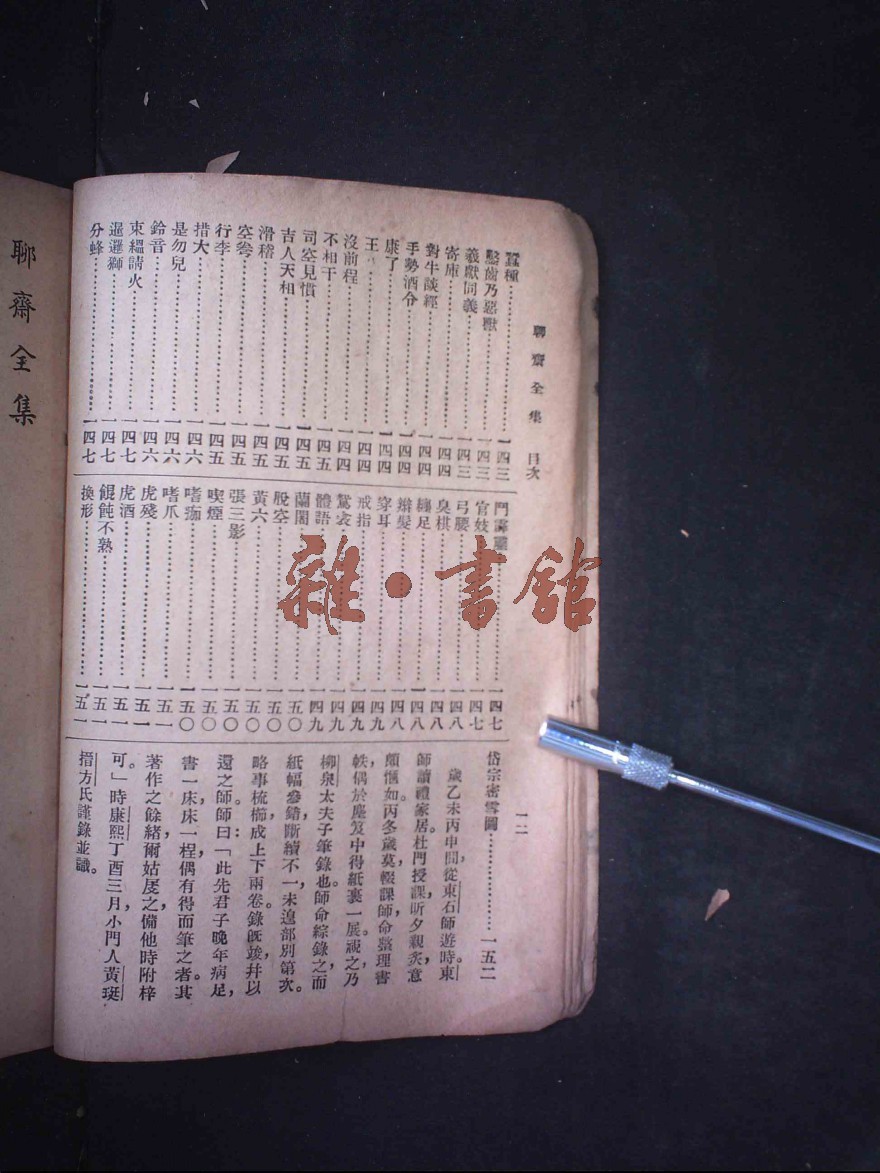 聊齋全集 目次
一二
蠶種……一四三
鑿齒乃惡獸……一四三
義獸同義……一四三
寄庫……一四四
對牛談經……一四四
手勢酒令……一四四
康了……一四四
王……一四四
沒前程……一四四
不相干……一四五
司空見慣……一四五
吉人天相……一四五
滑稽……一四五
空……一四五
行李……一四五
措大……一四六
是勿兒……一四六
鈴音……一四六
束縕請火……一四七
暹邏獅……一四七
分蜂……一四七
鬥……一四七
官妓……一四七
弓腰……一四八
臭棋……一四八
纏足……一四八
辮髮……一四八
穿耳……一四九
戒指……一四九
鴛衾……一四九
體語……一四九
蘭闍……一五〇
股空……一五〇
黃六……一五〇
張三影……一五〇
喫煙……一五〇
嗜痂……一五〇
嗜爪……一五一
虎殘……一五一
虎酒……一五一
餛飩不熟……一五一
換形……一五一
岱宗密雪圖……一五二
歲乙未丙申間，從東石師遊。時東
師讀禮家居。杜門授課，昕夕親炙，意
頗愜如。丙冬歲莫輟課，師命整理書
軼，偶於塵笈中得紙裹一。展視之，乃
柳泉太夫子筆錄也。師命綜錄之，而
紙幅參錯，斷續不一，未遑部別第次。
略事梳櫛，成上下兩卷。錄旣竣，幷以
還之師。師曰：「此先君子晚年病足，
書一床，床一桯，偶有得而筆之者。其
著作之餘緒爾，姑庋之，備他時附梓
可。」時康熙丁酉三月，小門人黃珽
搢方氏謹錄並識。
聊齋全集
雜·書館